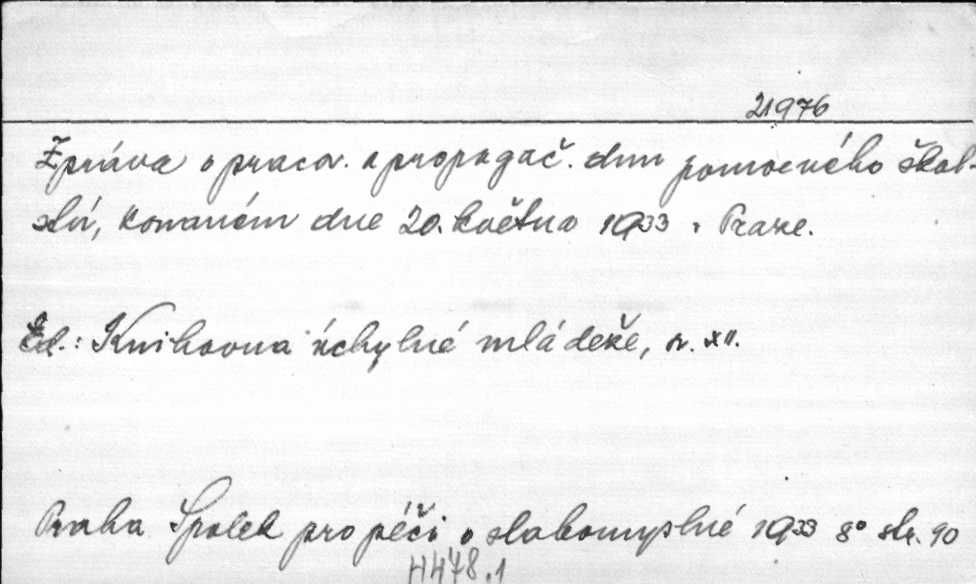 21976
Zpráva o pracov. a propagač. dnu pomocného škol-
ství, konaném dne 20. května 1933 v Praze.
Ed.: Knihovna úchylné mládeže, sv. XII.
Praha Spolek pro péči o slabomyslné 1933 8° str. 90
H478.1